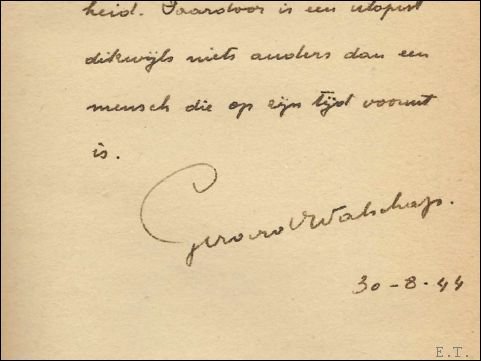 heid. Daardoor is een utopist
dikwijls niets anders dan een
mensch die op zijn tijd vooruit
is.
Gerard Walschap.
30-8-44
E.T.